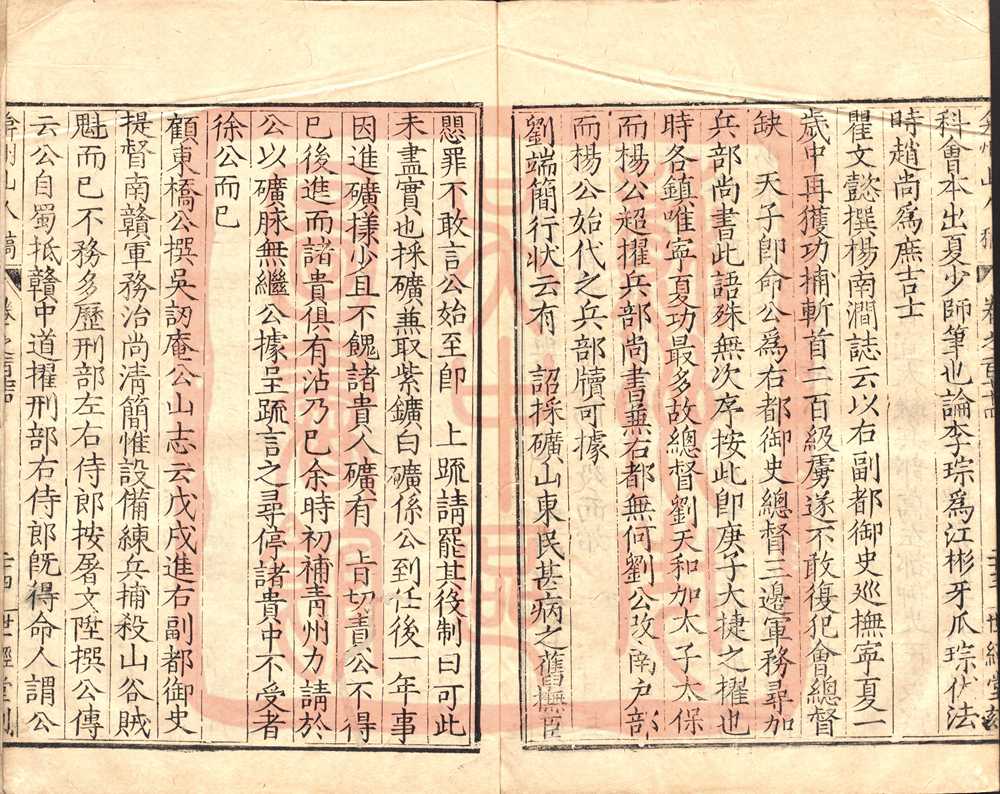 科會本出夏少師筆也論李琮爲江彬牙爪琮伏法
時趙尚爲庶吉士
瞿文懿撰楊南澗誌云以右副都御史巡撫寧夏一
歲中再獲功補斬首二百級虜遂不敢復犯會總督
缺　天子卽命公爲右都御史總督三邊軍務尋加
兵部尚書此語殊無次序按此卽庚子大捷之擢也
時各鎮唯寧夏功最多故總督劉天和加太子太保
而楊公超擢兵部尚書兼右都無何劉公改南戶部
而楊公始代之兵部牘可據
劉端簡行狀云有　詔採礦山東民甚病之舊撫臣
懲罪不敢言公始至卽　上疏請罷其後制曰可此
未盡實也採礦兼取紫鑛白礦係公到任後一年事
因進礦樣少且不餽諸貴人礦有　旨切責公不得
已後進而諸貴俱有沾乃已余時初補青州力請於
公以礦脉無繼公據呈疏言之尋停諸貴中不受者
徐公而已
顧東橋公撰吳訒庵公山志云戊戌進右副都御史
提督南贛軍務治尚清簡惟設備練兵捕殺山谷賊
魁而已不務多歷刑部左右侍郎按屠文陞撰公傳
云公自蜀抵贛中道擢刑部右侍郎旣得命人謂公